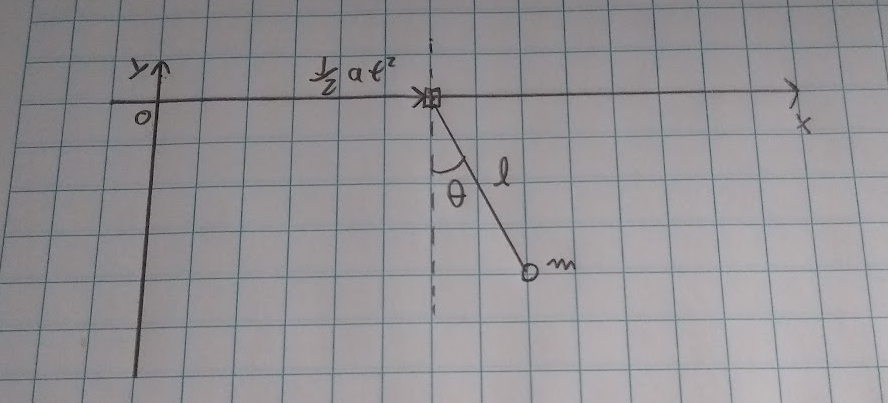 y
½ at²
O
x
θ
l
m